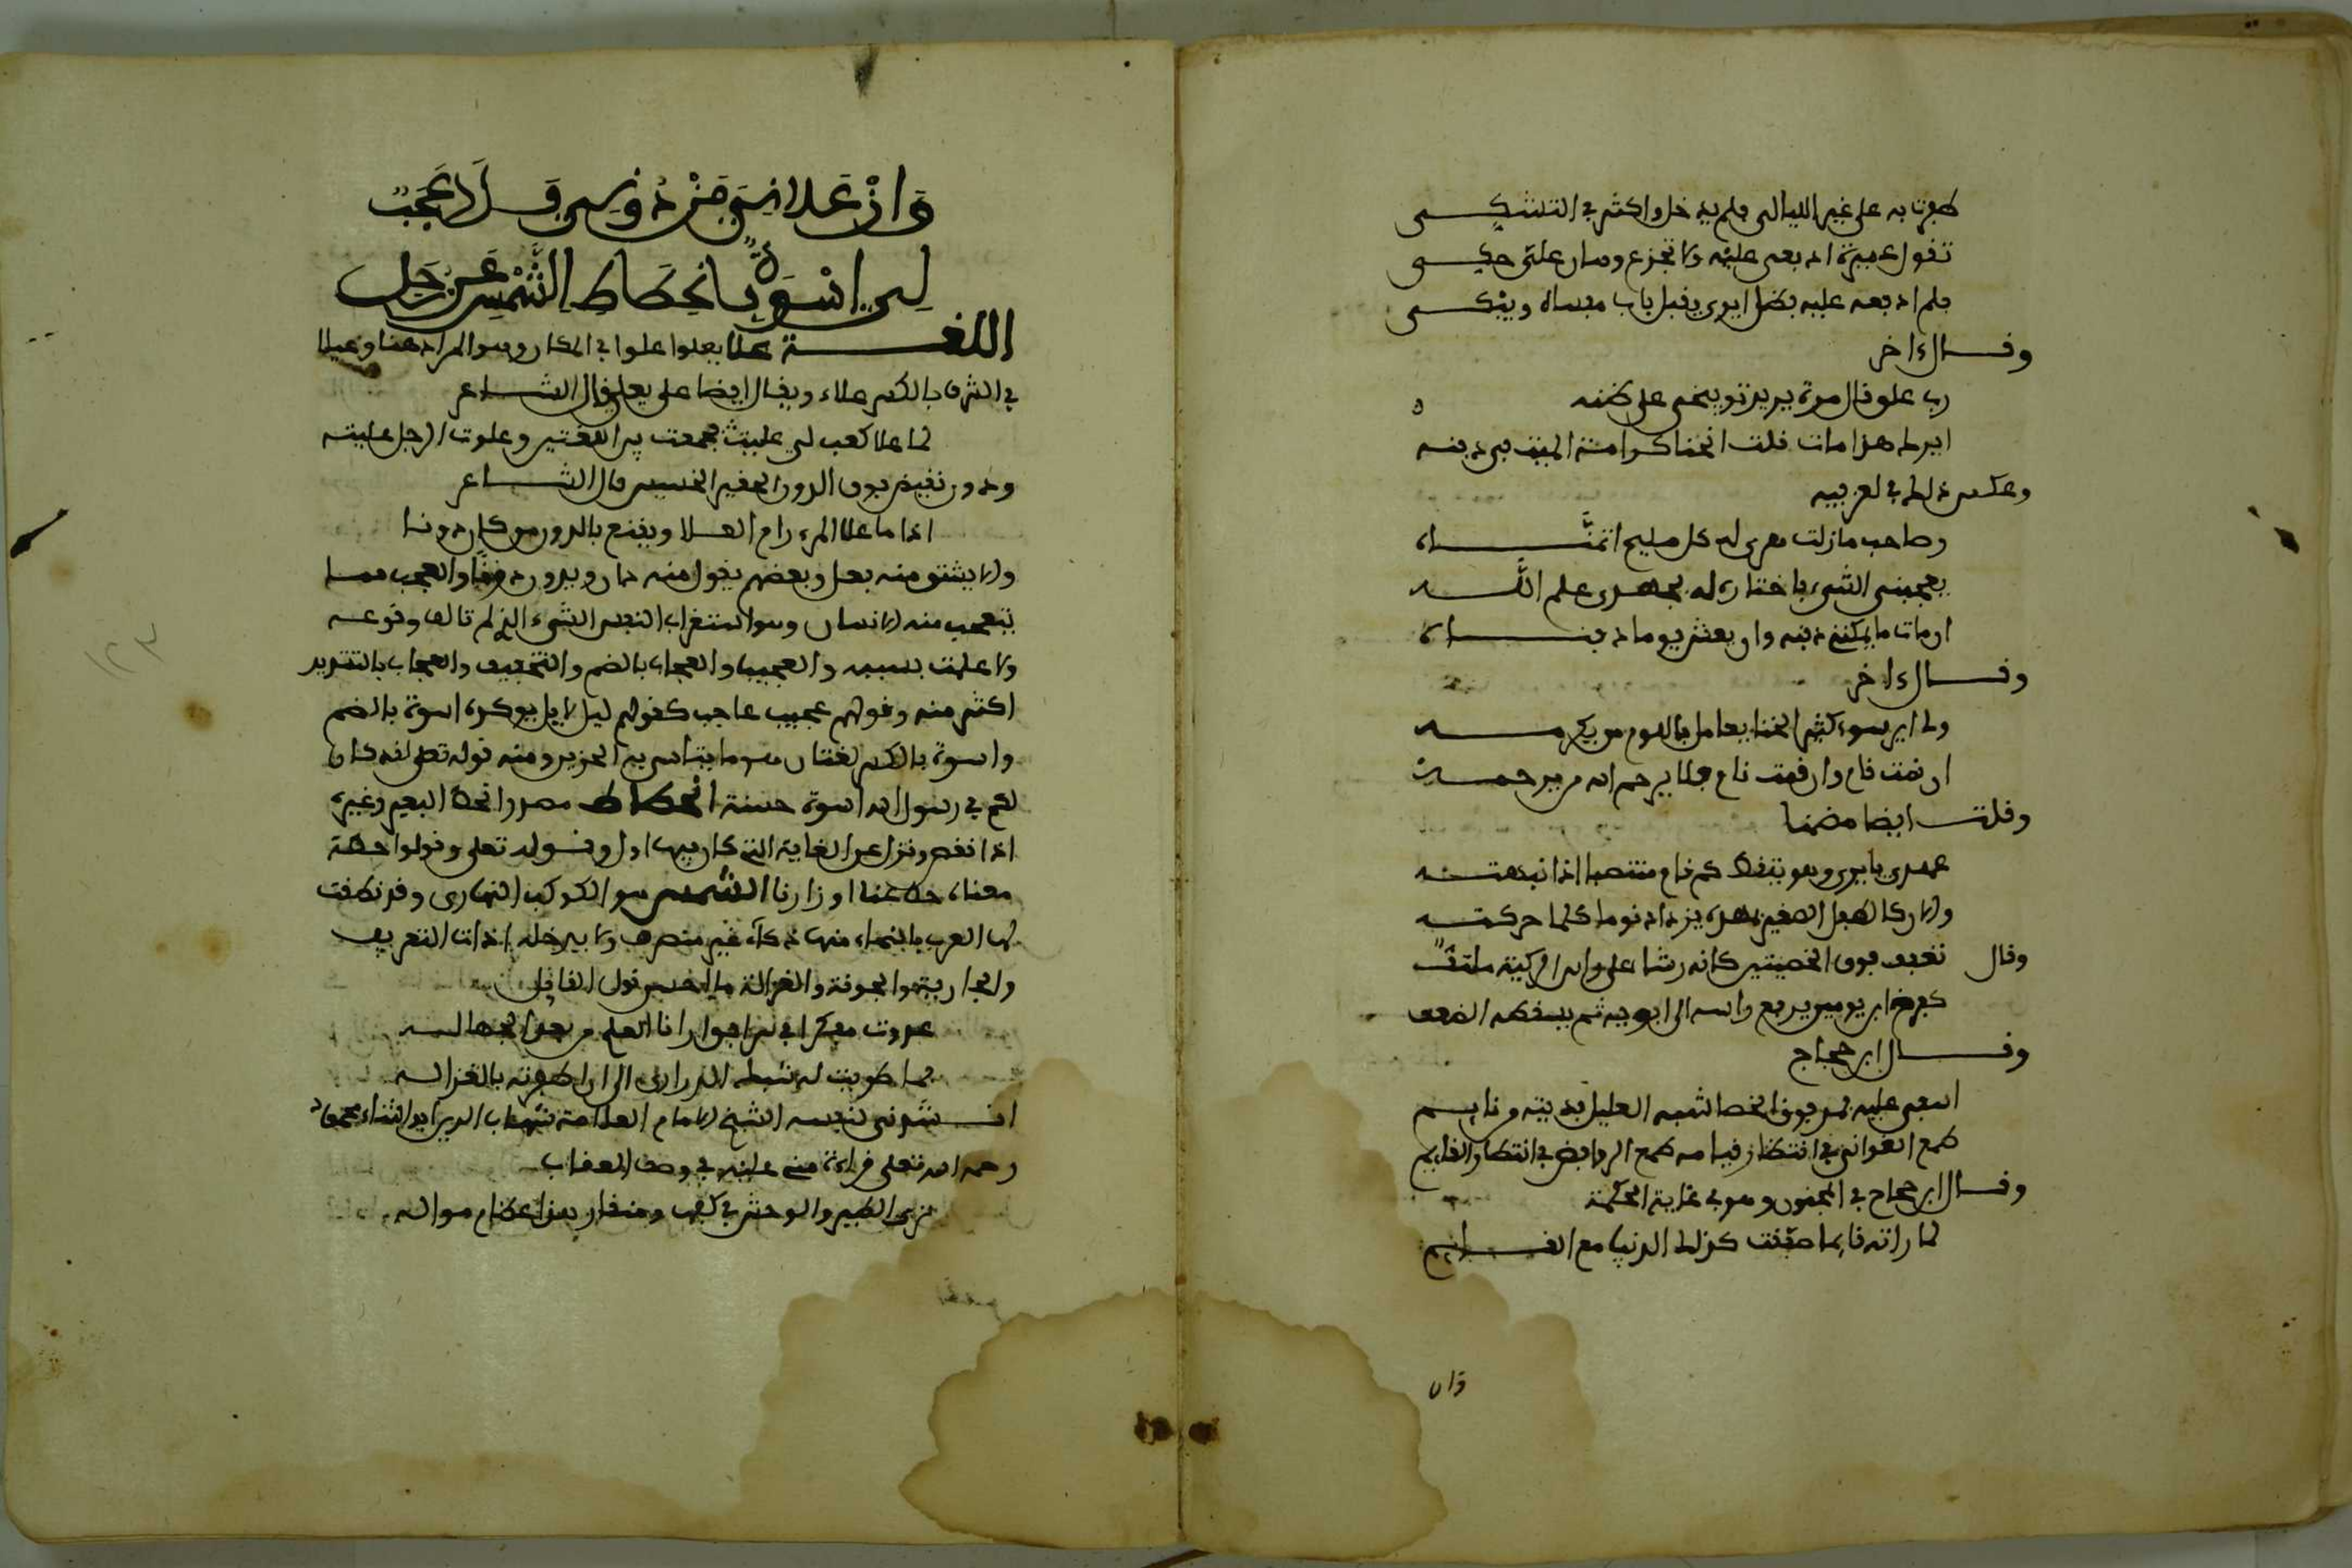 ظفرت به على غير الليالي فلم يدخل واكثر في التشكي
تقول عميرة ادفعه عليه ولا تجزع وسان علتي حكي
فلم ادفعه عليه بظل ايري يقبل باب مفساه ويبكي
وقال ءاخر
رب علو قال مرة يريد توبيخي على ظنه
ايرك هذا مات قلت انخنا كرامة الميت في دفنه
وعكس ذلك في لغز فيه
وصاحب مازلت من كل مليح اتمناه
يعجبني الشيء باختاره له بجهدي علم الله
ان مات ما يمكنني دفنه وان يعش يوما دفناه
وقال ءاخر
ولي اير سوء كثير الخنا يعامل باللوم من يكرمه
ان نمت قام وان قمت نام فلا يرحم الله من يرحمه
وقلت ايضا مضمنا
عهدي بايري وهو يتفظ كم قام منتصبا اذا نبهته
والان كالطفل الصغير بمهده يزداد نوما كلما حركته
وقال تعقف فوق الخصيتين كانه رشا على راس الركية ملتف
كفرخ ابن يومين يرفع راسه الى ابويه ثم يسقطه الضعف
وقال ابن حجاج
اسفي عليه فوق الخصا شبه العليل فديته من نايم
طمع الغواني في انتظار قيامه طمع الروافض في انتظار القايم
وقال ابن حجاج في المجون وهو في غاية الحكمة
لما راته قايما صفقت كذلك الدنيا مع القايم
وان
وَاِنْ عَلَانِي مَنْ دُونِي فَلَا عَجَبٌ
لِي اسْوَةٌ بِانْحِطَاطِ الشَّمْسِ عَنْ زُحَلِ
اللغة علا يعلوا علوا في المكان وهو المراد هنا وعلا
في الشرف بالكسر علاء ويقال ايضا على يعلى قال الشاعر
لما علا كعبك لي عليت فجمعت بين اللغتين وعلوت الرجل غلبته
ودون نقيض فوق الدون الحقير الخسيس قال الشاعر
اذا ما علا المرء رام العلا ويقنع بالدون من كان دونا
ولا يشتق منه فعل وبعضهم يقول منه دان ويدون دونا والعجب مما
يتعجب منه الانسان وهو استغراب النفس الشيء الذي لم تالف وقوعه
ولا علمت بسببه والعجيب والعجاب بالضم والتخفيف والعجاب بالتشديد
اكثر منه وقولهم عجيب عاجب كقولهم ليل لايل يوكد اسوة بالضم
واسوة بالكسر لغتان هو ما يتاسى به الحزين ومنه قوله تعلى لقد كان
لكم في رسول الله اسوة حسنة انحطاط مصدر انحط البعير وغيره
اذا نقص ونزل عن الغاية التي كان فيها اول وقوله تعلى وقولوا حطة
معناه حط عنا اوزارنا الشمس هو الكوكب النهاري وقد نطقت
لها العرب باسماء منها ذكاء غير منصرف ولا يدخله اداة التعريف
والجارية والجونة والغزالة ما احسن قول القايل
غدوت مفكرا في امر افق ارانا العلم من بعد الجهاله
فما طويت له شبك الدراري الى ان اظفرته بالغزاله
انشدني لنفسه الشيخ الامام العلامة شهاب الدين ابو الثناء محمود
رحمه الله تعلى قراءة مني عليه في وصف العقاب
ترى الطير والوحش في كفها ومنقارها ذا عظام مزاله
١٢٣